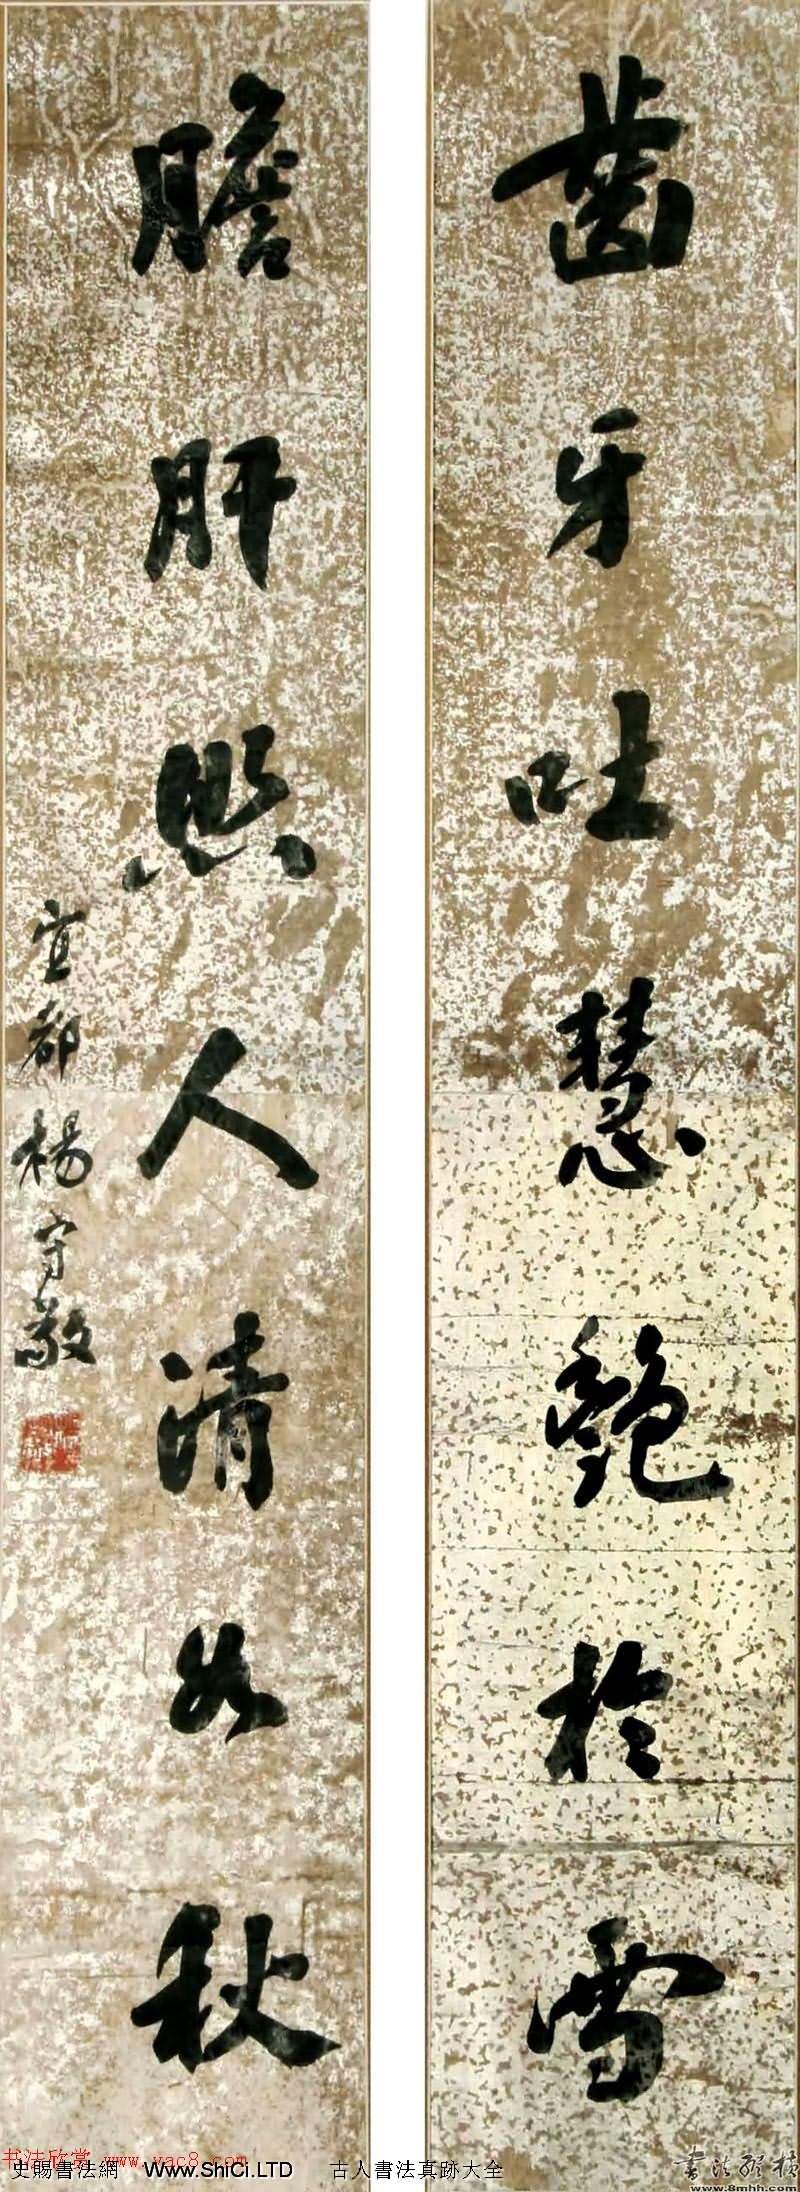 齒牙吐慧艷於雪
膽肝照人清如秋
宜都楊守敬
书法欣赏 www.yac8.com
史賜書法網 Www.ShiCi.LTD 古人書法真跡大全
www.8mhh.com